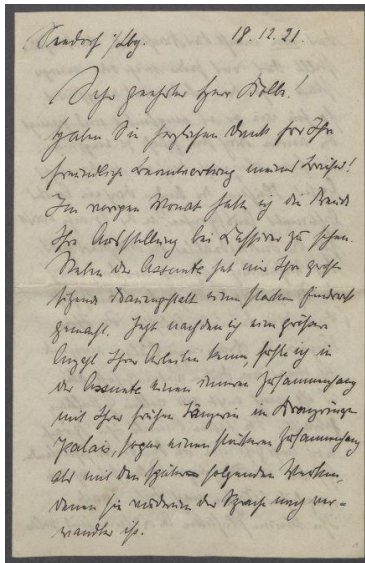 Seedorf i/Lbg. 19.12.21.
Sehr geehrter Herr Kolbe!
Haben Sie herzlichen Dank für Ihre
freundliche Beantwortung meines Briefes!
Im vorigen Monat hatte ich die Freude
Ihre Ausstellung bei Cassirer zu sehen.
Neben der Assunta hat mir Ihre große
sitzende Frauengestalt einen starken Eindruck
gemacht. Jetzt nachdem ich eine größere
Anzahl Ihrer Arbeiten kenne, fühle ich in
der Assunta einen inneren Zusammenhang
mit Ihrer frühen Tänzerin im Kronprinzen
Palais, sogar einen stärkeren Zusammenhang
als mit den später folgenden Werken,
denen sie der Sprache nach ver-
wandter ist.